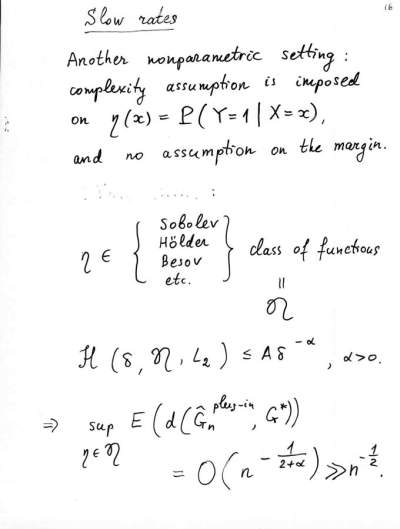 16
Slow rates
Another nonparametric setting:
complexity assumption is imposed
on η(x) = P(Y=1 | X=x),
and no assumption on the margin.
:
η ∈ { Sobolev
Hölder
Besov
etc. } class of functions
=
𝔑
ℋ(δ, 𝔑, L₂) ≤ Aδ^{-α}, α>0.
⇒ sup_{η∈𝔑} E(d(Ĝ_n^{plug-in}, G*))
= O(n^{-1/(2+α)}) ≫ n^{-1/2}.